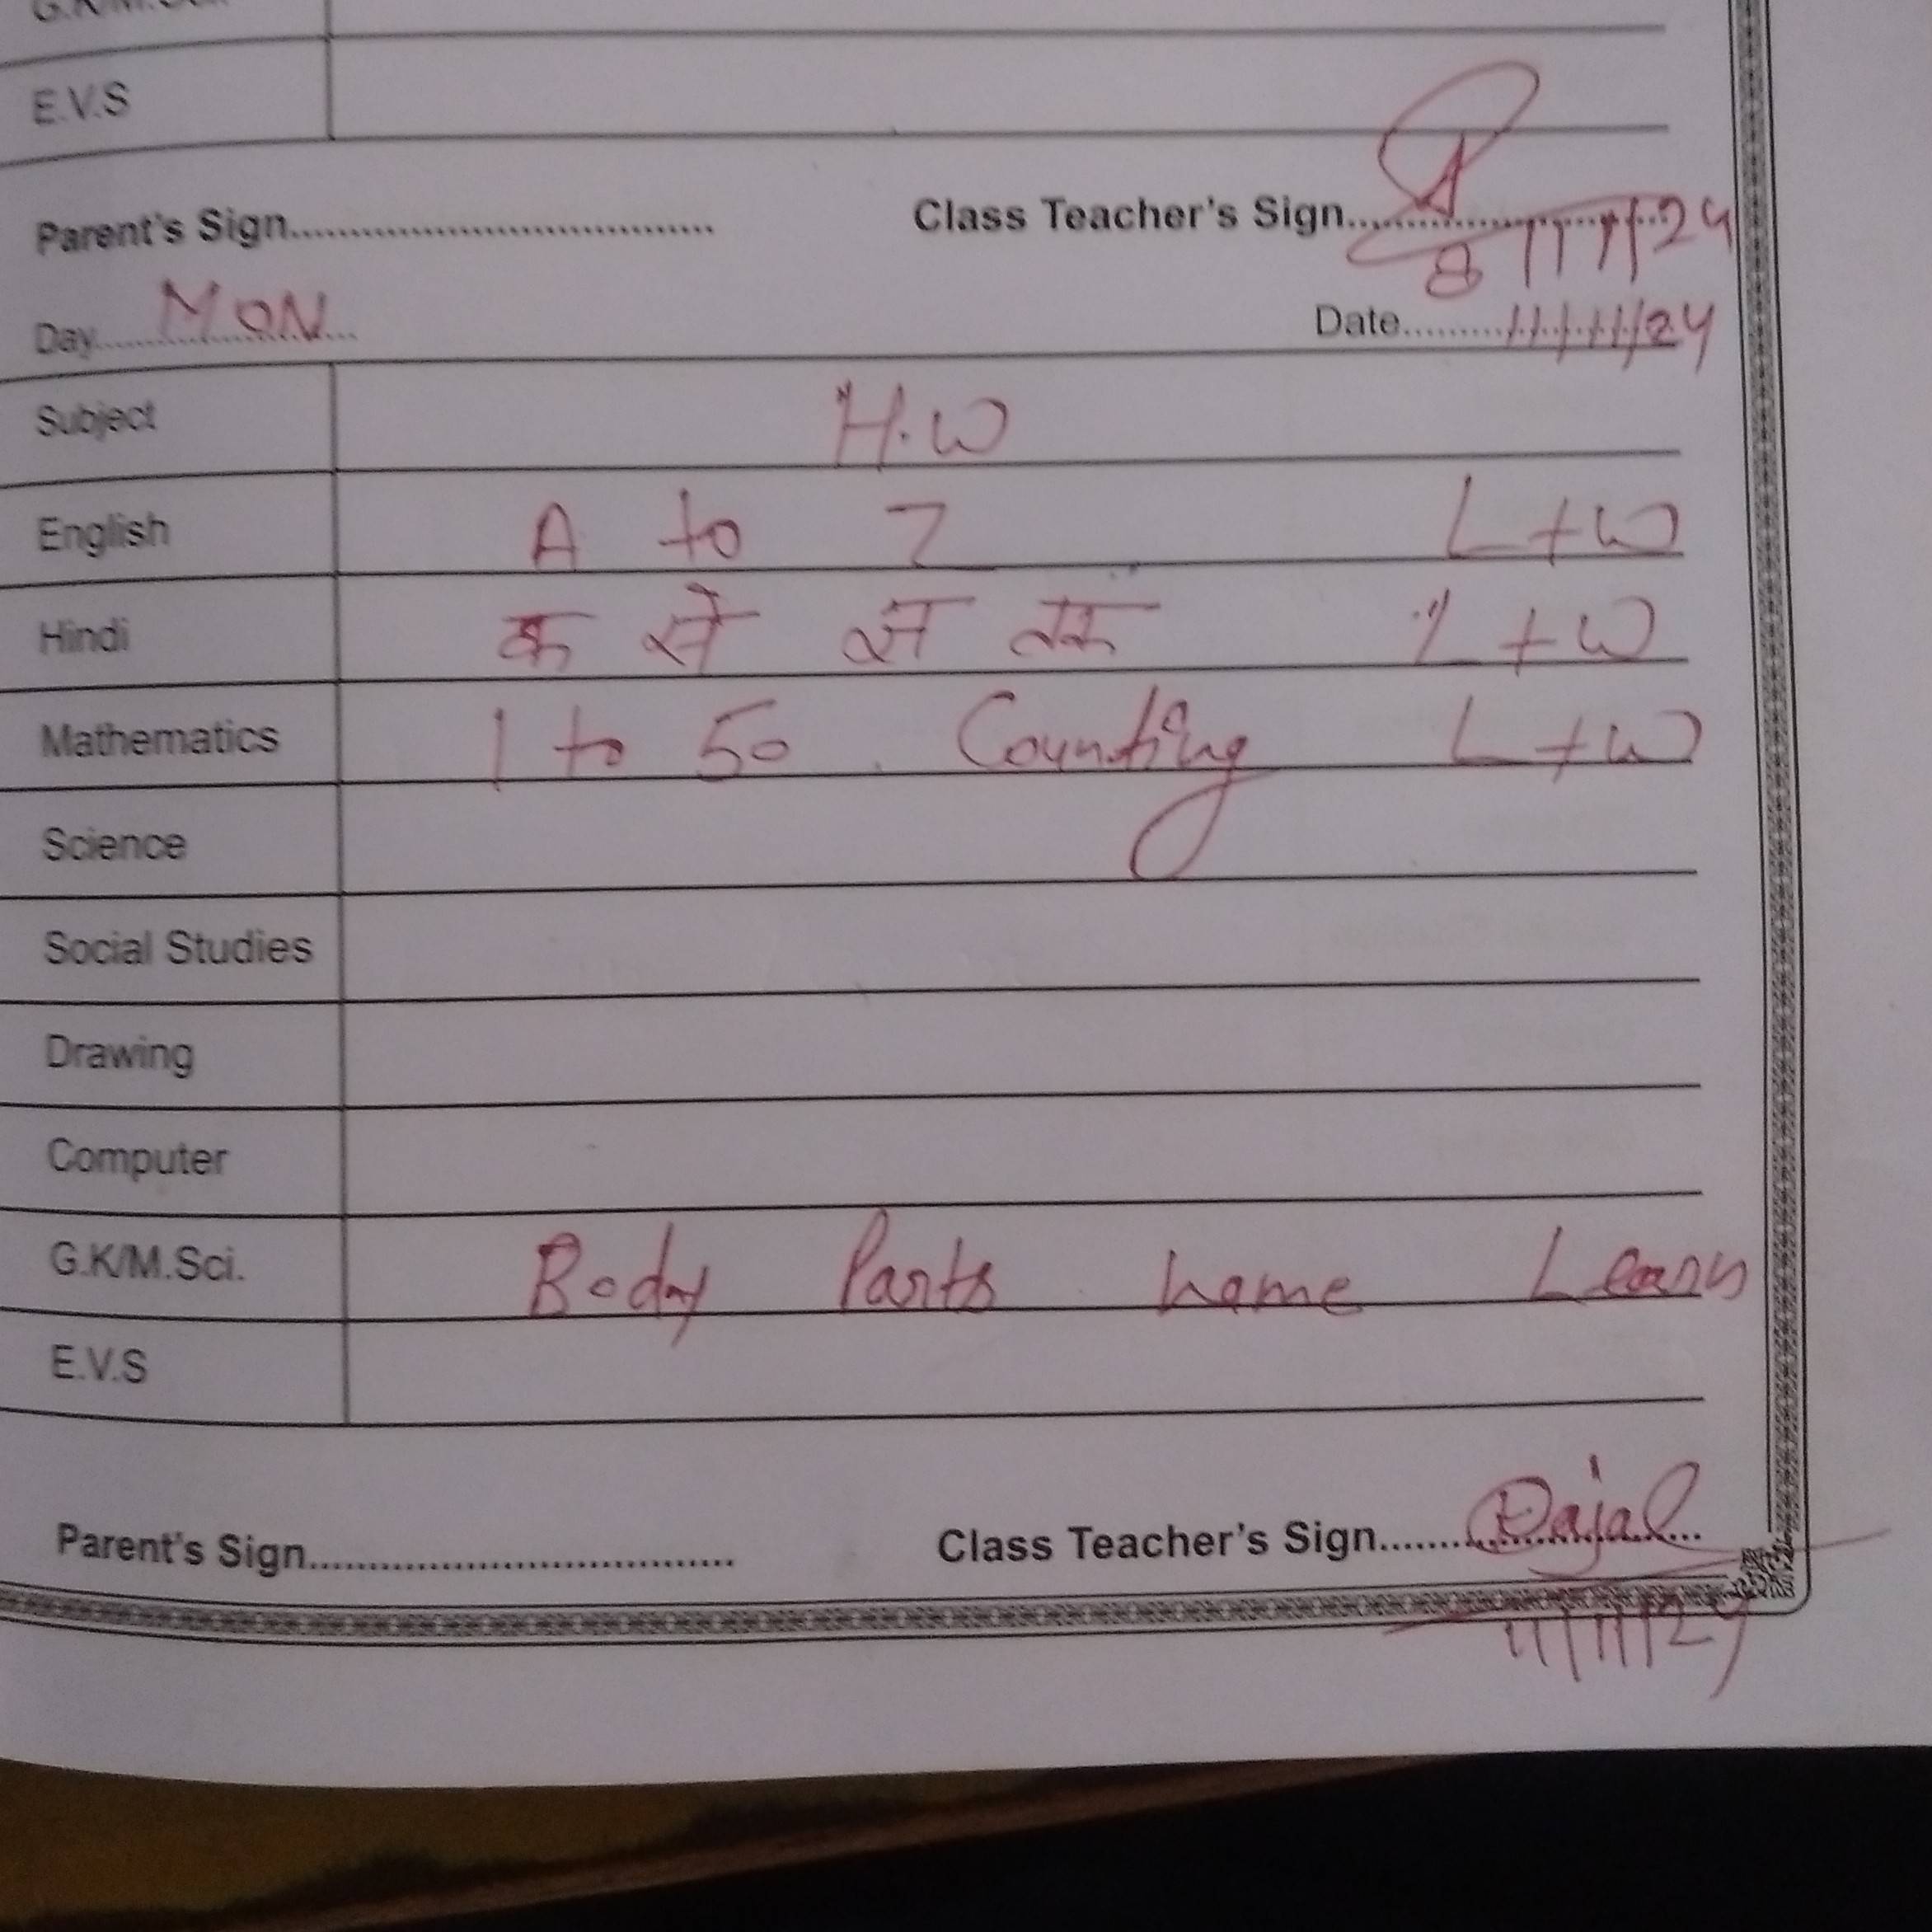 E.V.S
Parent's Sign.................................... Class Teacher's Sign..........................
8/11/24
Day......MON...... Date.........11/11/24
Subject H.W
English A to Z L+W
Hindi क से तक L+W
Mathematics 1 to 50 Counting L+W
Science
Social Studies
Drawing
Computer
G.K/M.Sci. Body Parts name Learn
E.V.S
Parent's Sign.................................... Class Teacher's Sign..........................
11/11/24